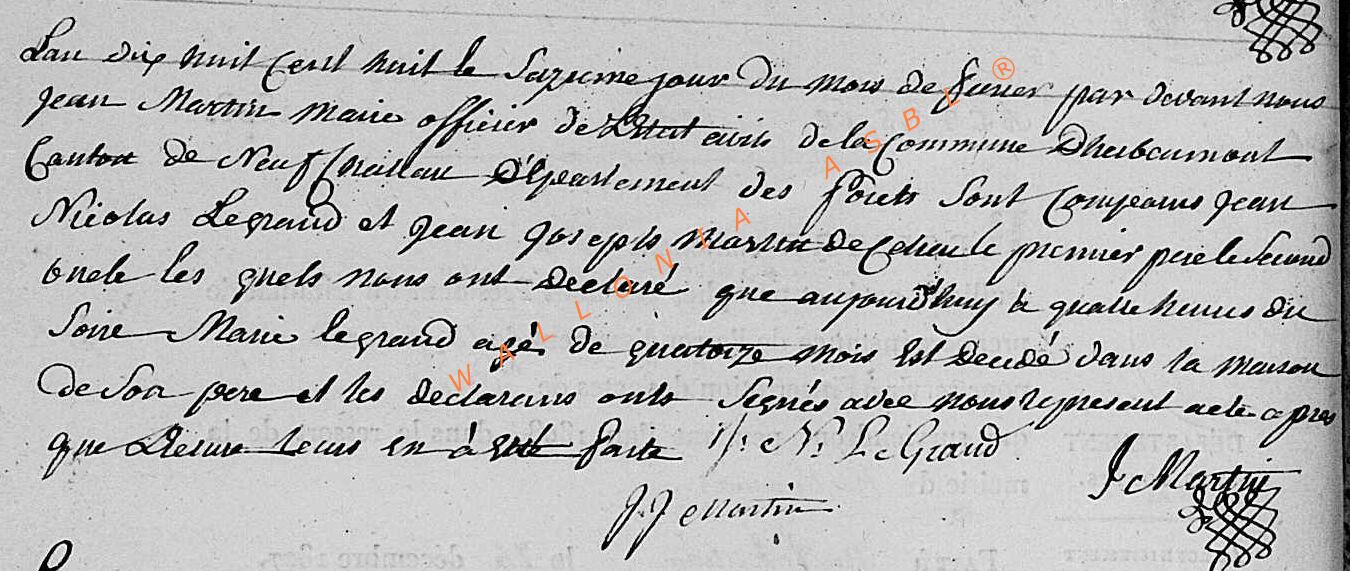 Lan dix huit Cent huit le Sazieme jour Du mois de fevrier par devant nous
Jean Martin Maire officier de L'Etat civils de la Commune Dherbeumont
Canton de Neufchateau Département des forets sont Comparus Jean
Nicolas Legrand et Jean Joseph Martin de le premier pere le Second
oncle les quels nous ont declaré que aujourd'huy à quatre heures du
Soire Marie legrand agé de quatorze mois Est Decedé dans la maison
de Son pere et les declarans onts Segnés avec nous le present acte apres
que Lecture leurs en à Eté faite J: N: LeGrand
J Martin
J.J Martin
WALLONIA ASBL ®